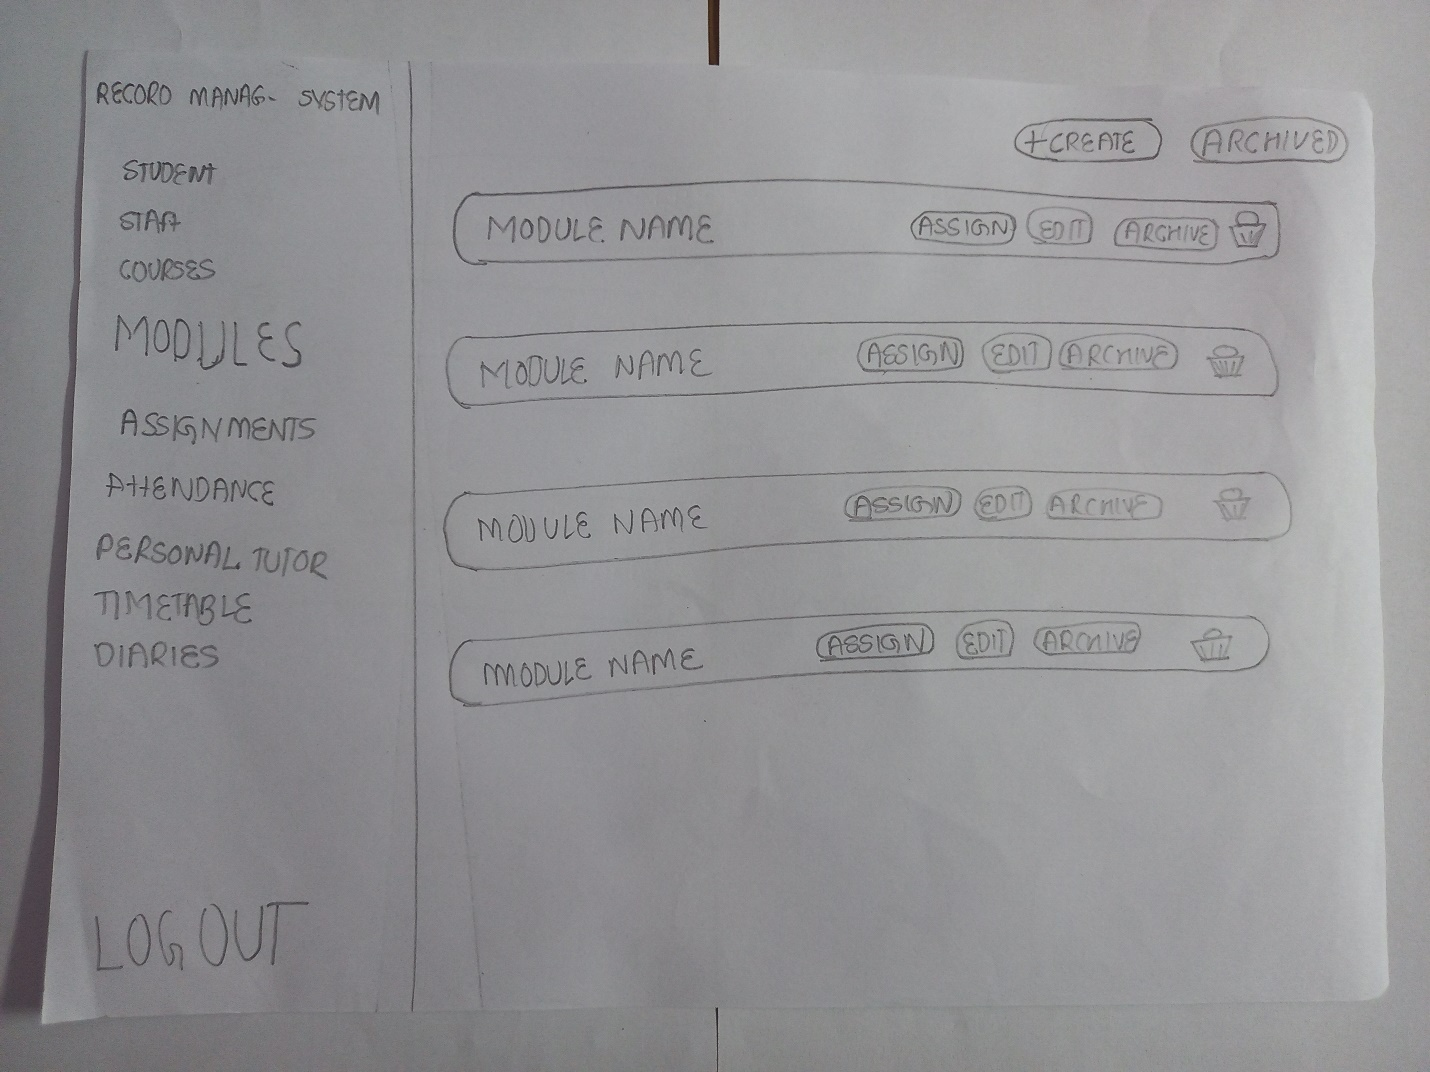 RECORD MANAG- SYSTEM
STUDENT
STAFF
COURSES
MODULES
ASSIGNMENTS
ATTENDANCE
PERSONAL TUTOR
TIMETABLE
DIARIES
LOG OUT
+CREATE ARCHIVED
MODULE NAME ASSIGN EDIT ARCHIVE
MODULE NAME ASSIGN EDIT ARCHIVE
MODULE NAME ASSIGN EDIT ARCHIVE
MODULE NAME ASSIGN EDIT ARCHIVE